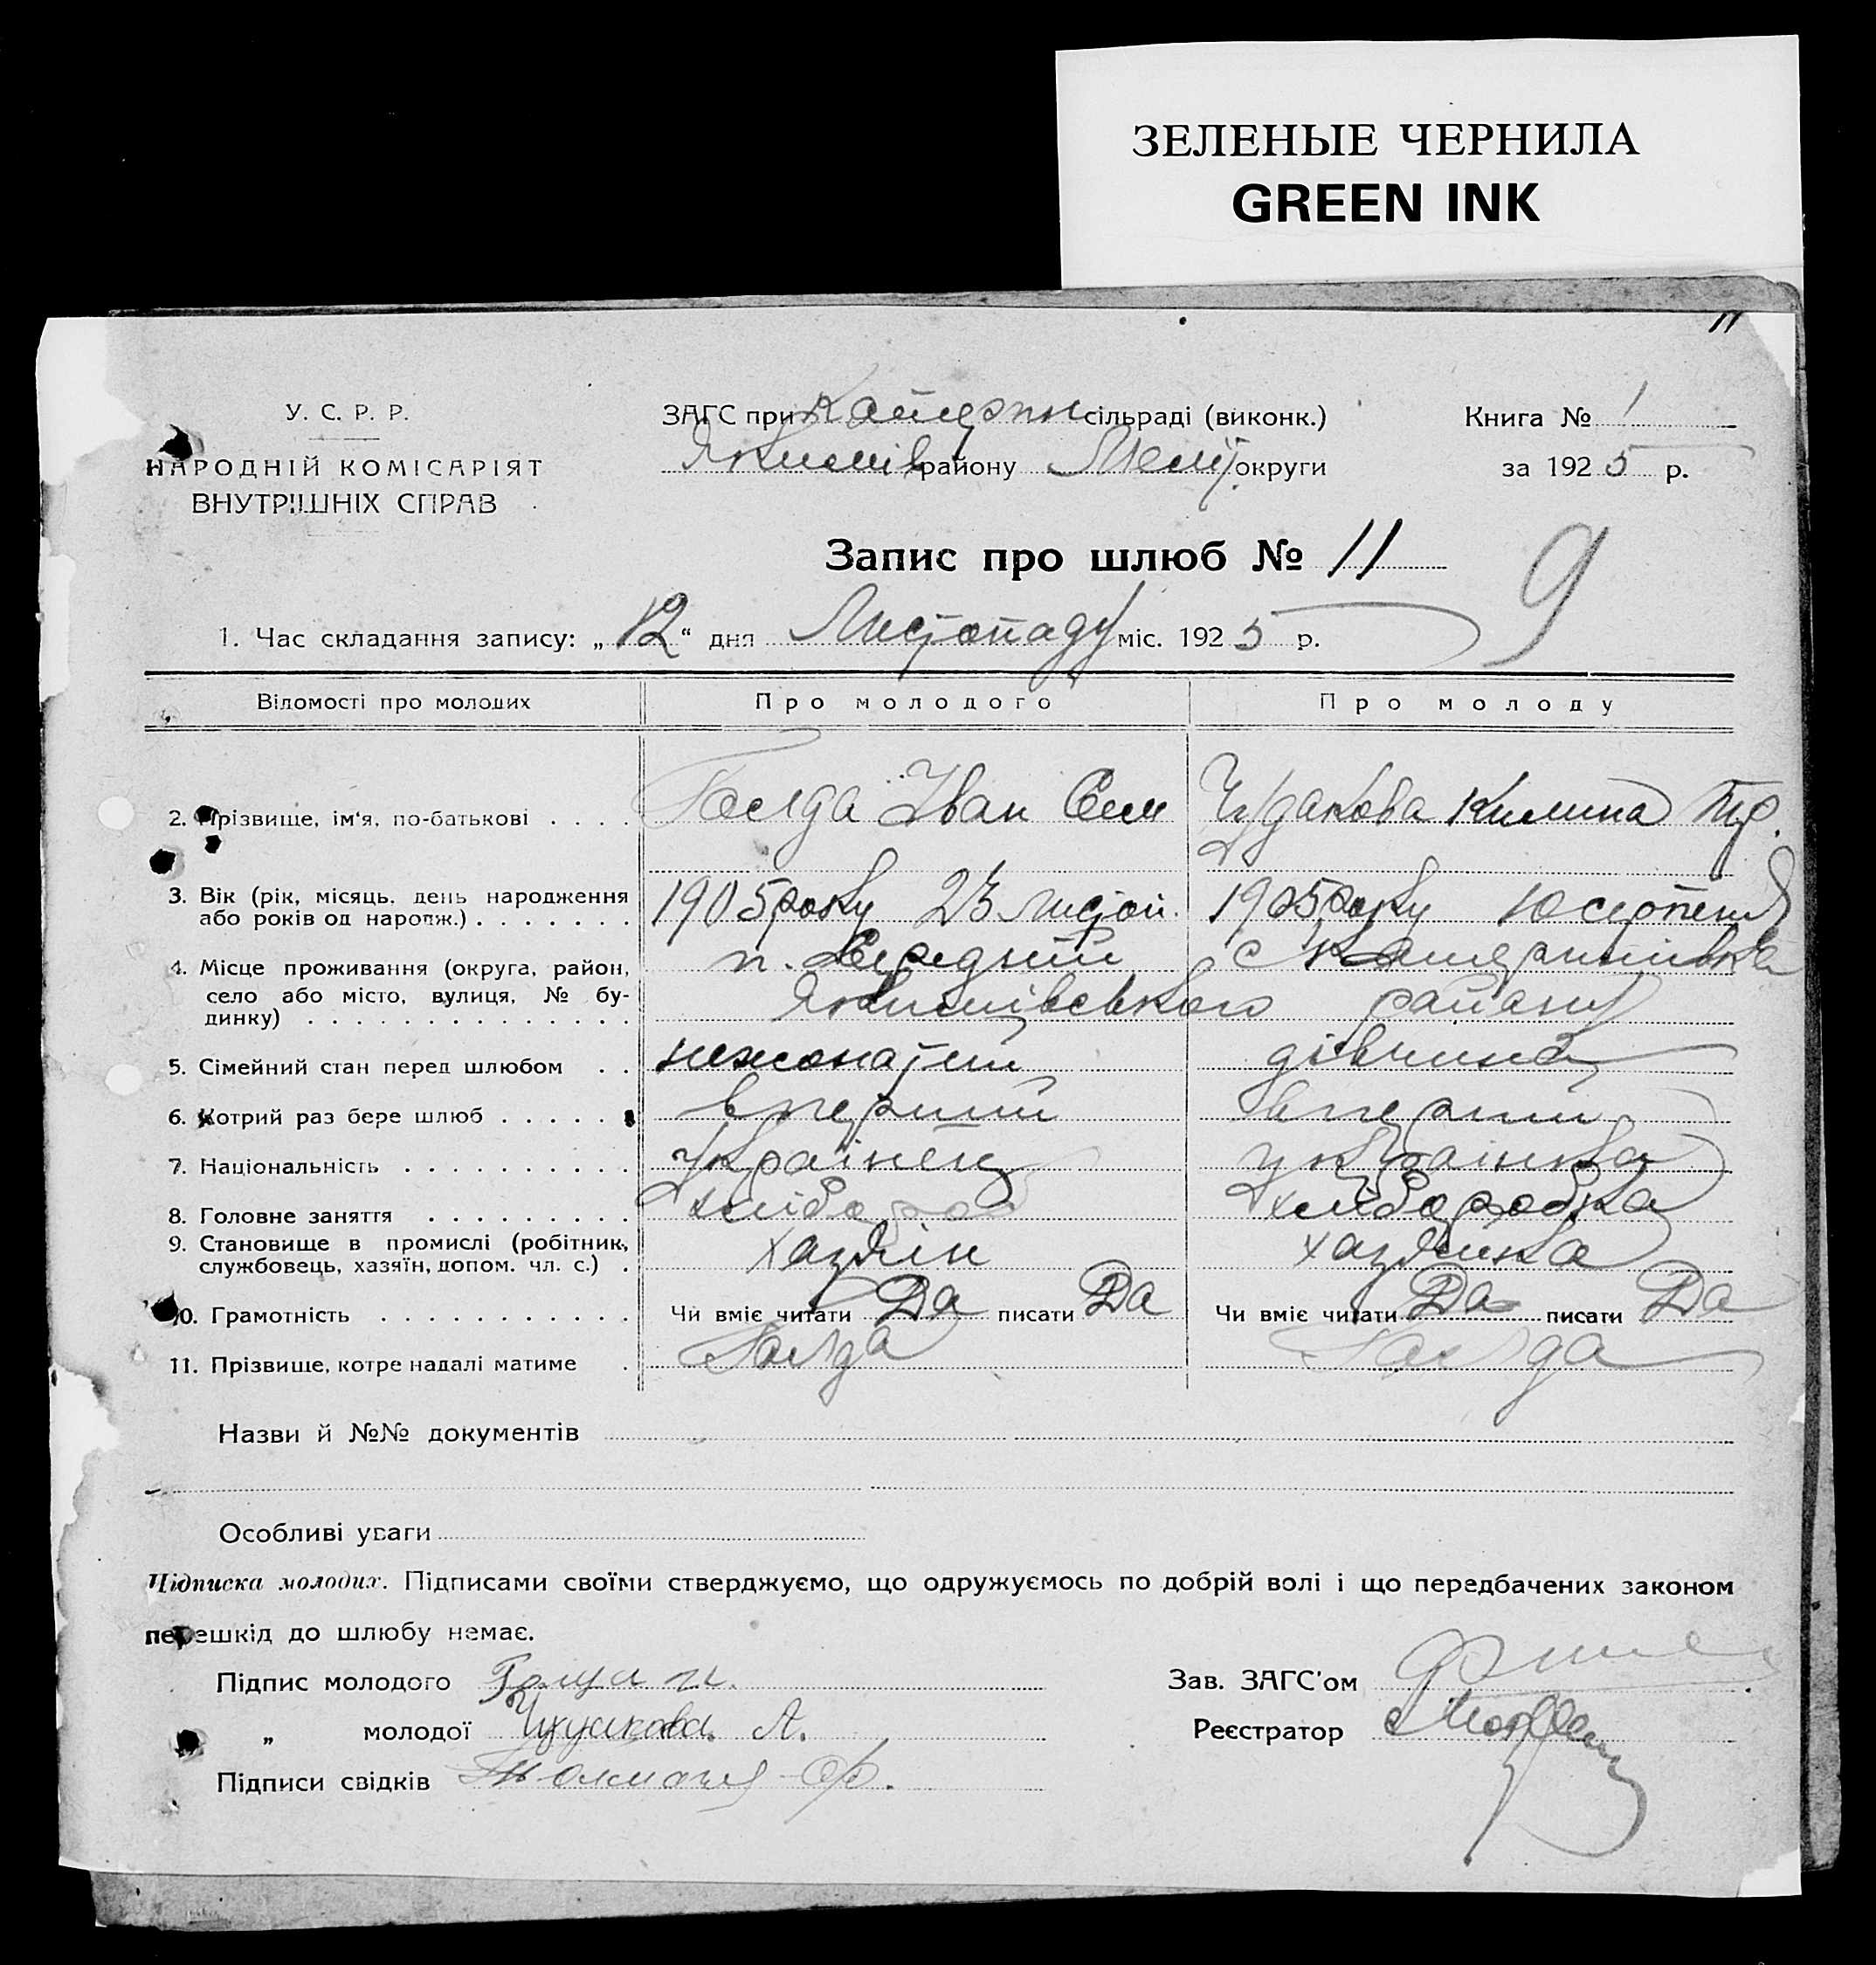 ЗЕЛЕНЫЕ ЧЕРНИЛА
GREEN INK
11
У. С. Р. Р.
НАРОДНІЙ КОМІСАРІЯТ
ВНУТРІШНІХ СПРАВ
ЗАГС при Катерин сільраді (виконк.)
Якимів району Меліт округи
Книга № 1
за 1925 р.
Запис про шлюб № 11
9
1. Час складання запису: „12“ дня Листопаду міс. 1925 р.
Відомості про молодих Про молодого Про молоду
2. Прізвище, ім‘я, по-батькові . . . . Іван Сем Чудакова Килина
3. Вік (рік, місяць, день народження
або років од народж.) . . . . . . . 1905 року 23 листоп. 1905 року 10 серпня
4. Місце проживання (округа, район,
село або місто, вулиця, № бу-
динку) . . . . . . . . . . . . . .
п. Середній с Катеринівка
Якимівського району
5. Сімейний стан перед шлюбом . . нежонатий дівчина
6. Котрий раз бере шлюб . . . . . . вперший вперший
7. Національність . . . . . . . . . . Українец українка
8. Головне заняття . . . . . . . . . хлібороб хлібор​обка
9. Становище в промислі (робітник,
службовець, хазяїн, допом. чл. с.) . хазяїн хазяйка
10. Грамотність . . . . . . . . . . . Чи вміє читати Да писати Да Чи вміє читати Да писати Да
11. Прізвище, котре надалі матиме .
Назви й №№ документів
Особливі уваги
Підписка молодих. Підписами своїми стверджуємо, що одружуємось по добрій волі і що передбачених законом
перешкід до шлюбу немає.
Підпис молодого
„ молодої А.
Підписи свідків
Зав. ЗАГС'ом
Реєстратор